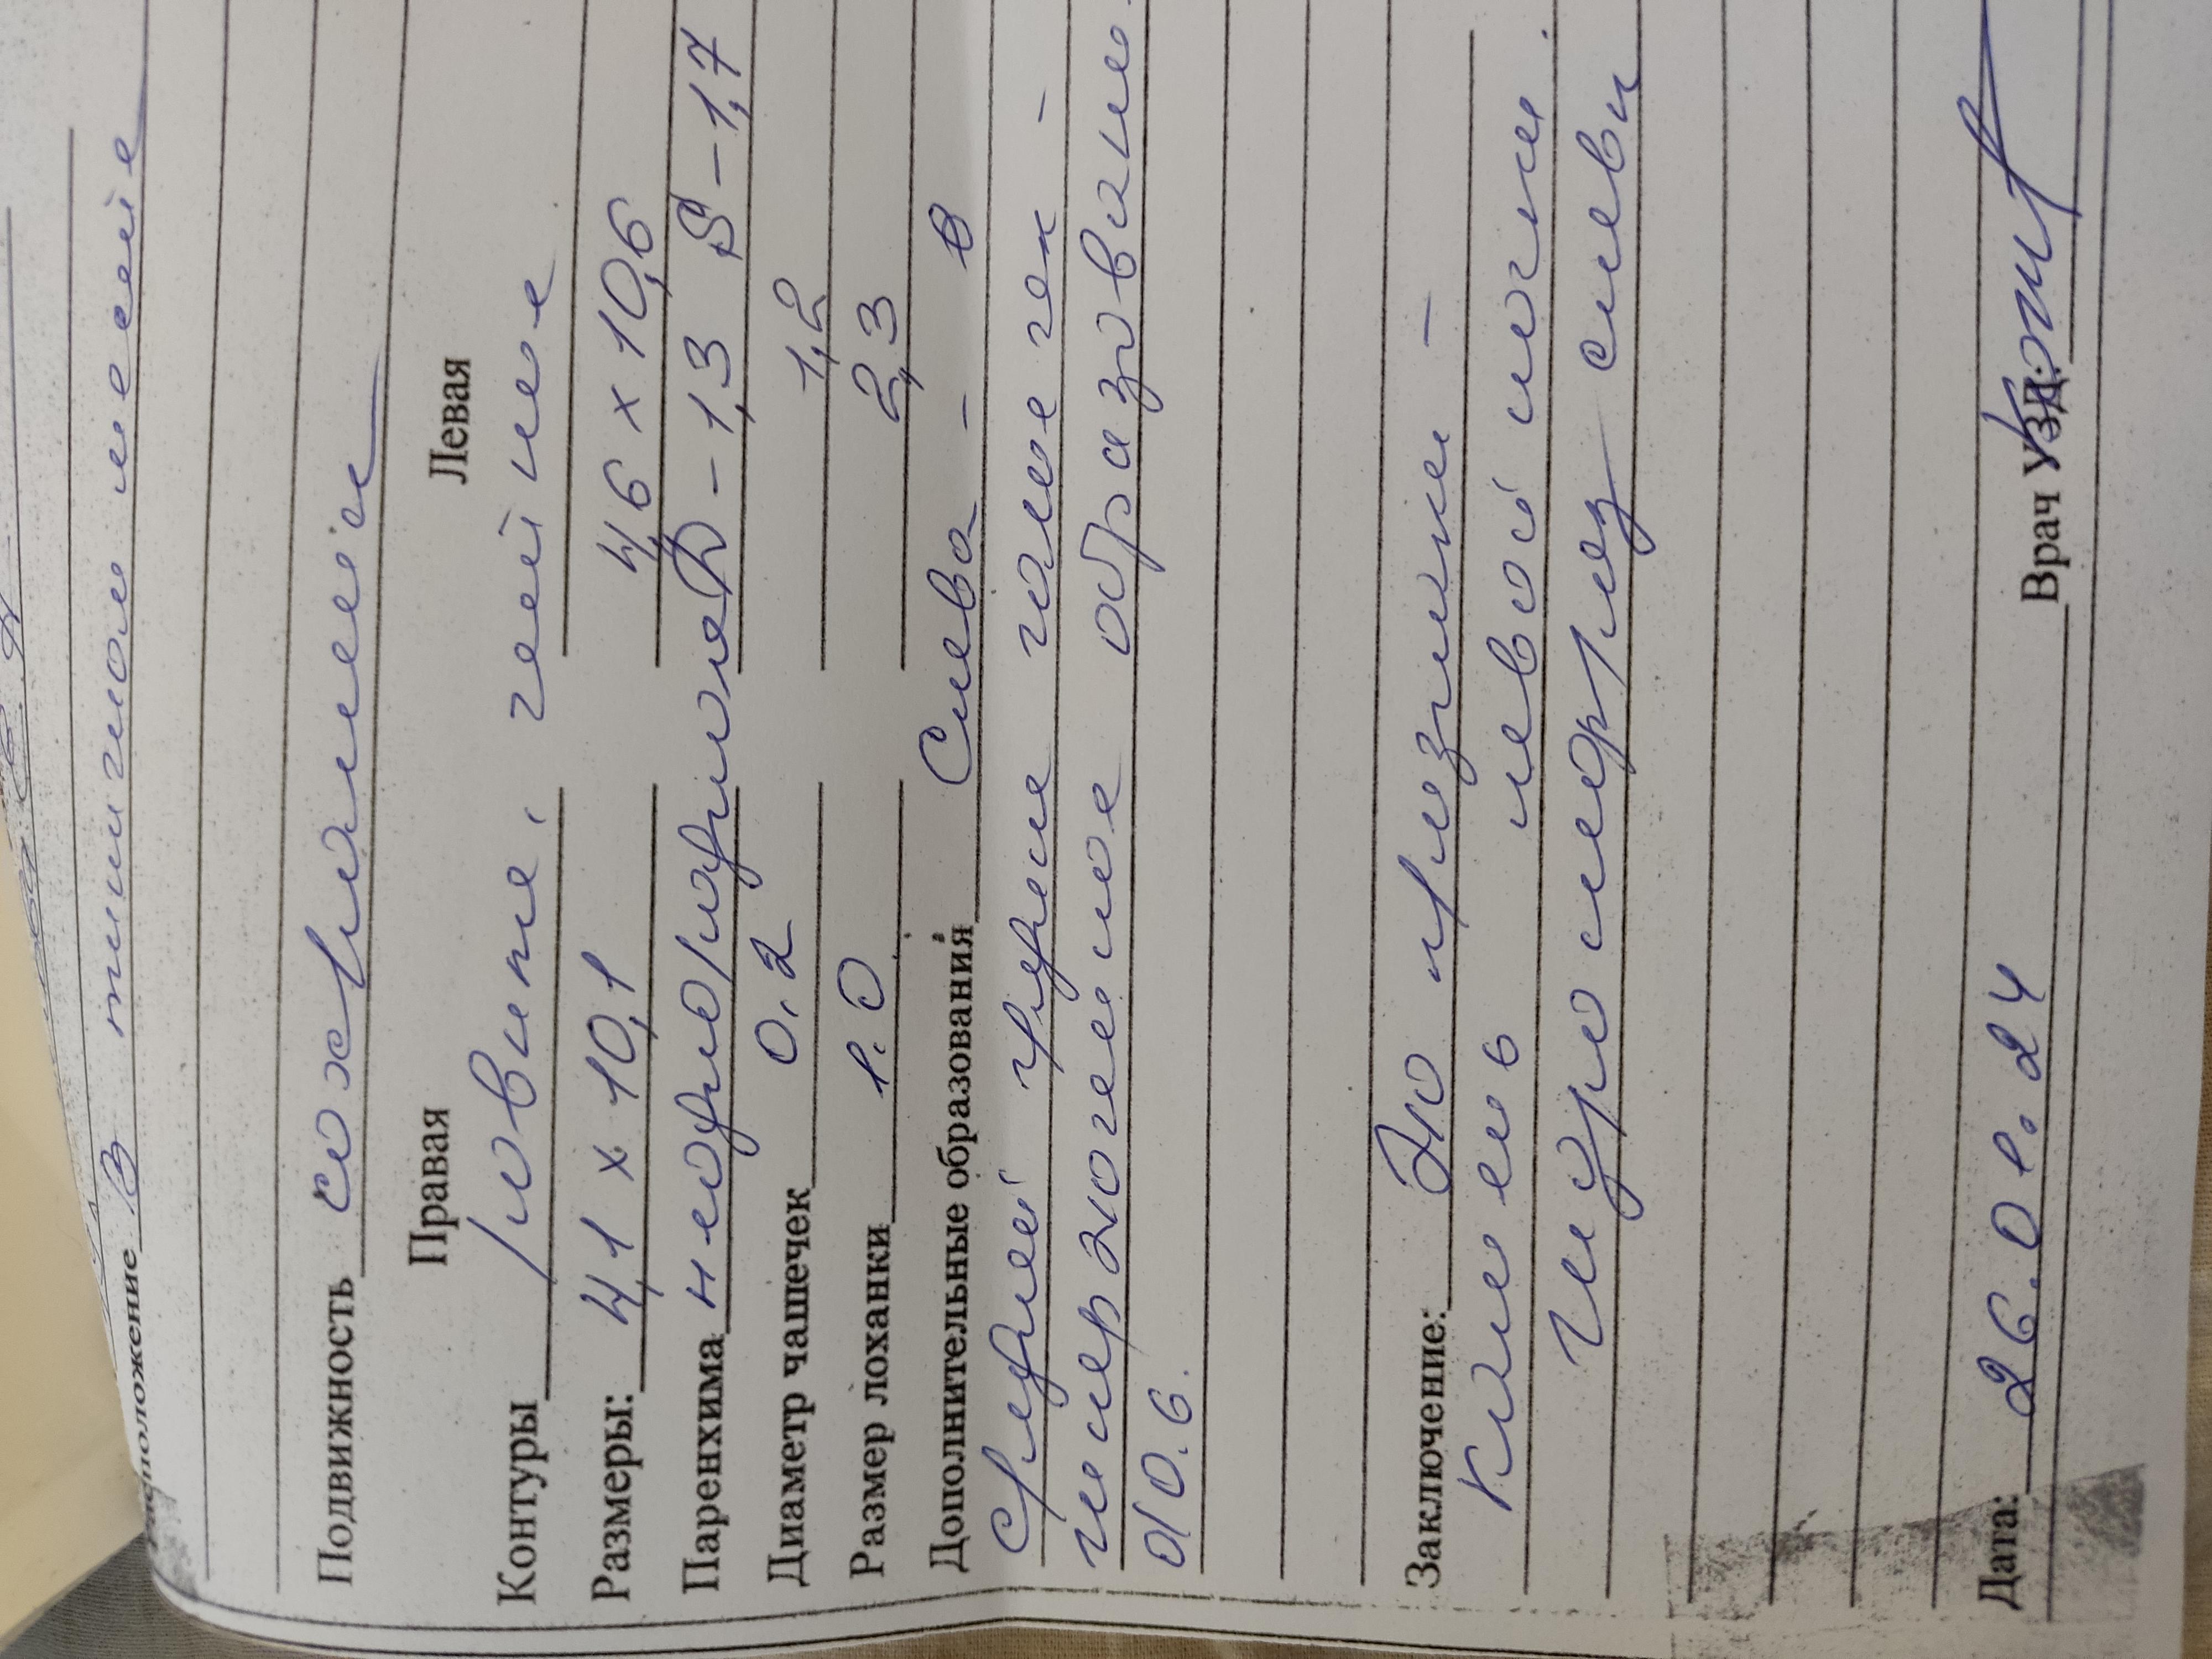 Расположение В типичном месте
Подвижность сохранена
Правая Левая
Контуры ровные, чёткие
Размеры: 4,1 х 10,1 4,6 х 10,6
Паренхима неоднородная D – 1,3 S – 1,7
Диаметр чашечек 0.2 1,2
Размер лоханки 1.0 2,3
Дополнительные образования Слева – в
средней
гиперэхогенное образование
d 0.6.
Заключение: Эхо признаки –
левой почки.
Гидронефроз слева
Дата: 26.01.24 Врач УЗД: